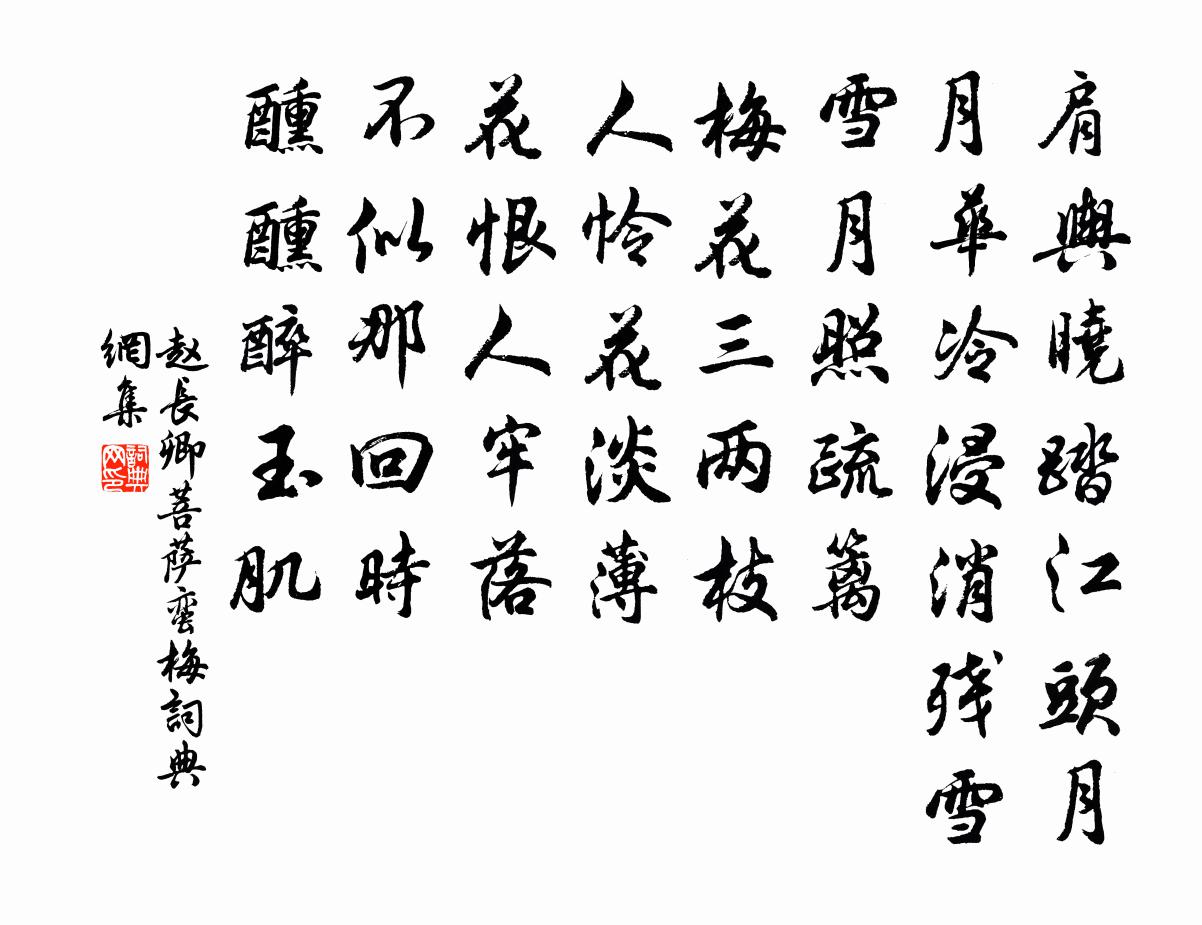 肩輿曉踏江頭月
月華冷浸消残雪
雪月照疏篱
梅花三两枝
人怜花淡薄
花恨人牢落
不似那回時
醺醺醉玉肌
赵長卿菩萨蛮梅詞典
網集
詞典
网印